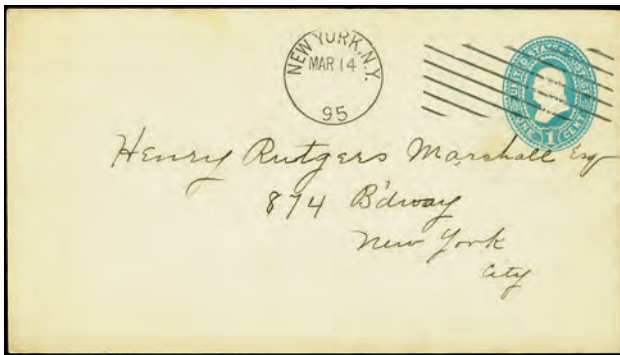 NEW YORK, N.Y.
MAR 14
95
UNITED STATES POSTAGE
ONE 1 CENT
Henry Rutgers Marshall Esq
874 B'dway
New York
City